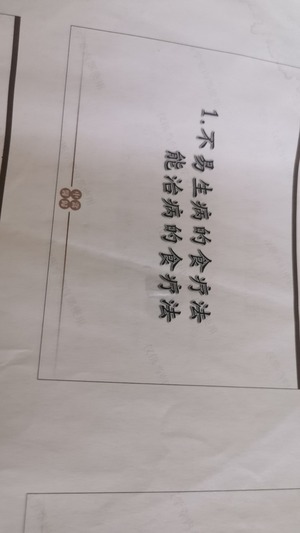 1.不易生病的食疗法
能治病的食疗法